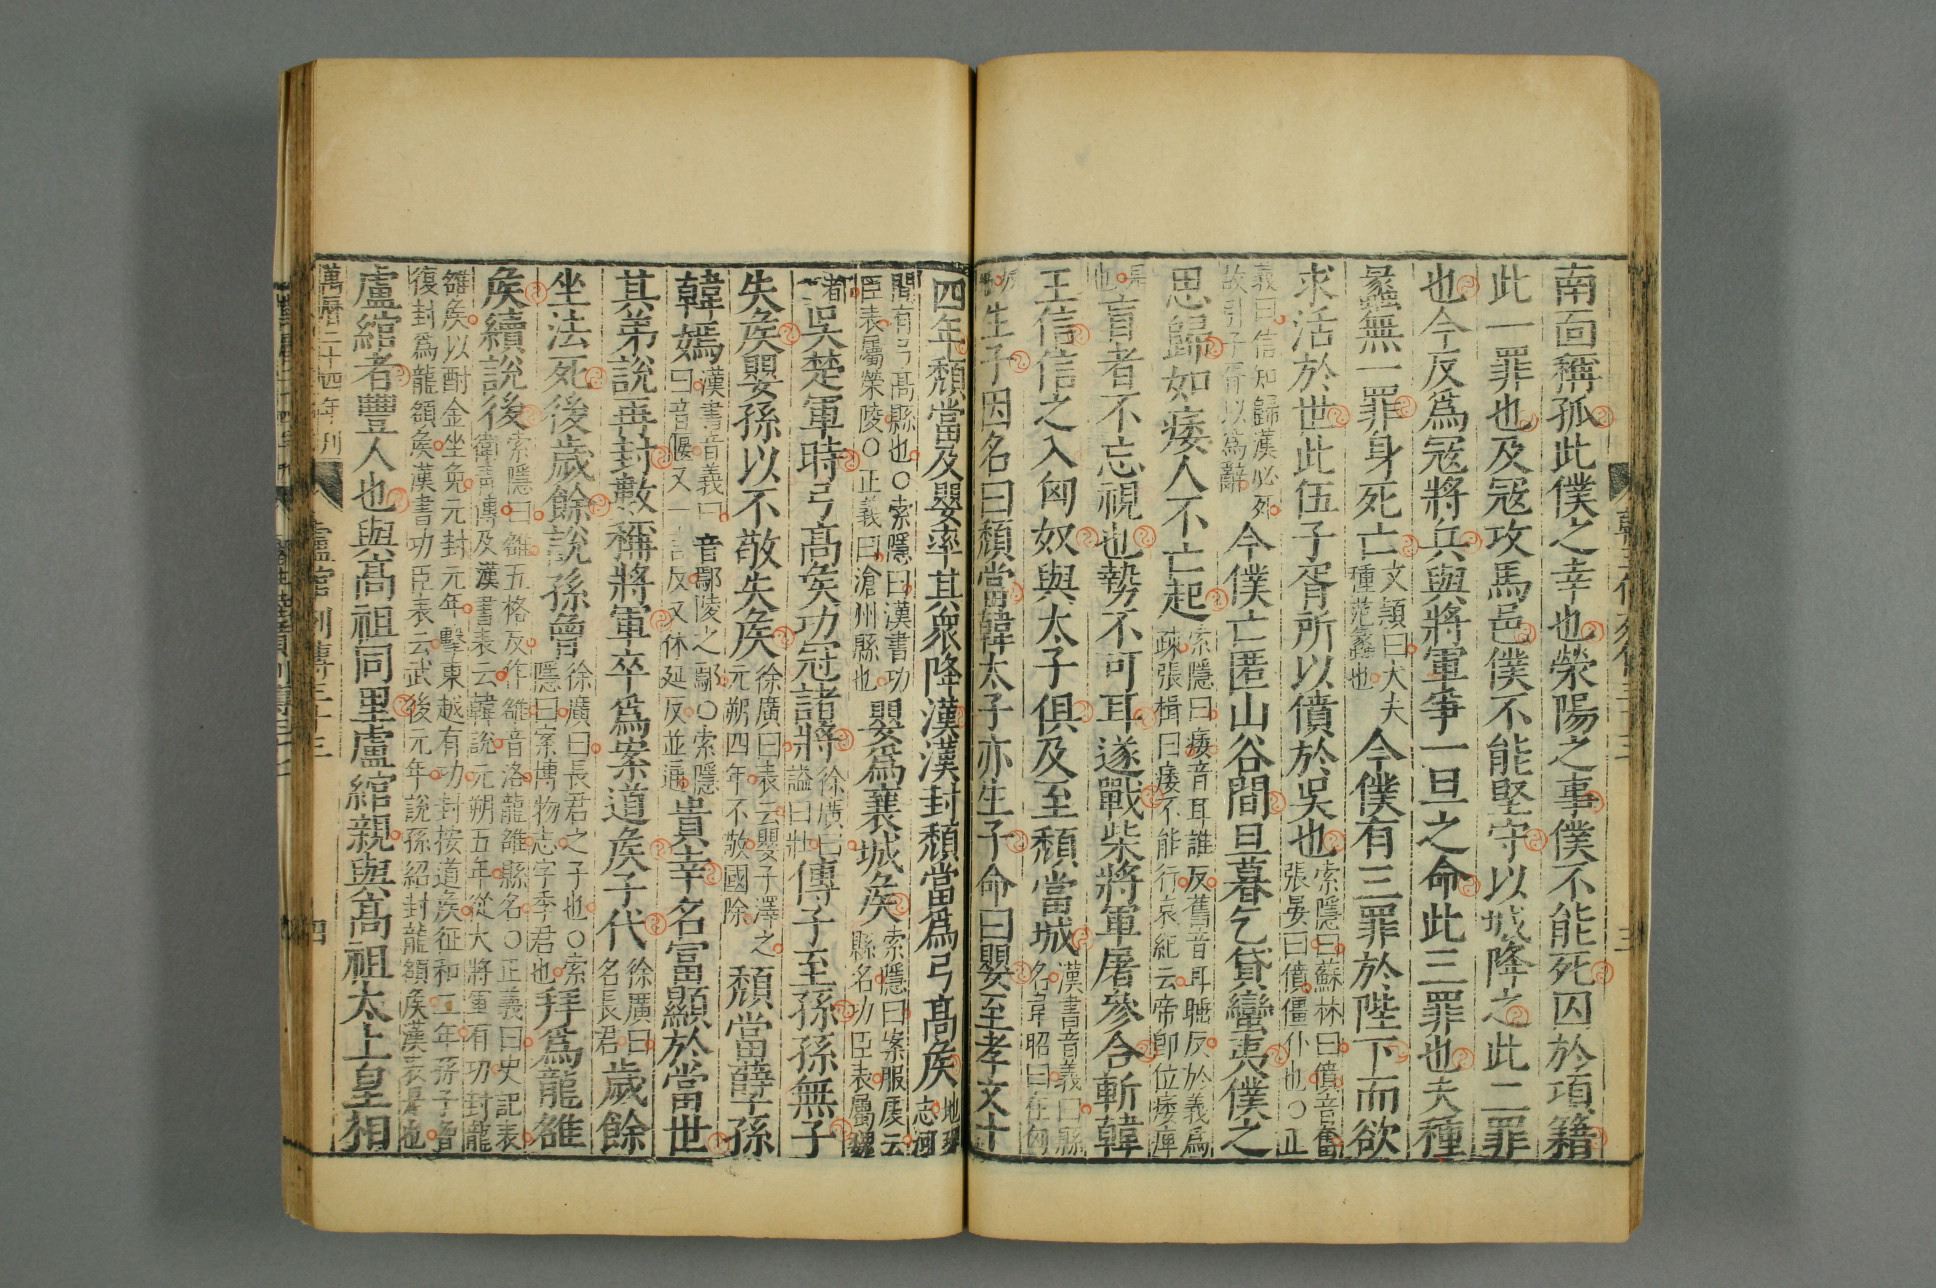 南面稱孤此僕之幸也滎陽之事僕不能死囚於項籍
此一罪也及冦攻馬邑僕不能堅守以城降之此二罪
也今反爲冦將兵與將軍爭一旦之命此三罪也夫種
蠡無一罪身死亡
文穎曰大夫
種范蠡也
今僕有三罪於陛下而欲
求活於世此伍子胥所以僨於吳也
索隱曰蘇林曰僨音奮
張晏曰僨僵仆也○正
義曰信知歸漢必死
故引子胥以爲辭
今僕亡匿山谷間旦暮乞貸蠻夷僕之
思歸如痿人不亡起
索隱曰痿音耳誰反舊音耳睡反於義爲
疎張楫曰痿不能行哀紀云帝即位痿痺
是
也
盲者不忘視也勢不可耳遂戰柴將軍屠參合斬韓
王信信之入匈奴與太子俱及至頹當城
漢書音義曰縣
名韋昭曰在匈
奴
地
生子因名曰頹當韓太子亦生子命曰嬰至孝文十
四年頹當及嬰率其衆降漢漢封頹當爲弓高矦
地理
志河
間有弓高縣也○索隱曰漢書功
臣表屬榮陵○正義曰滄州縣也
嬰爲襄城矦
索隱曰案服虔云
縣名功臣表屬魏
者
吳楚軍時弓高矦功冠諸將
徐廣曰
謚曰壯
傳子至孫孫無子
失矦嬰孫以不敬失矦
徐廣曰表云嬰子澤之
元朔四年不敬國除
頹當孽孫
韓嫣
漢書音義曰音鄢陵之鄢○索隱
曰音偃又一言反又休延反並通
貴幸名富顯於當世
其弟說再封數稱將軍卒爲案道矦子代
徐廣曰
名長君
歲餘
坐法死後歲餘說孫曾
徐廣曰長君之子也○索
隱曰案博物志字季君也
拜爲龍雒
矦續說後
索隱曰雒五格反作雒音洛龍雒縣名○正義曰史記表
衛青傳及漢書表云韓說元朔五年從大將軍有功封龍
雒矦以酎金坐免元封元年擊東越有功封按道矦征和二年孫子曾
復封爲龍頟矦漢書功臣表云武後元年說孫紹封龍頟矦漢表是也
盧綰者豐人也與高祖同里盧綰親與高祖太上皇相
萬曆二十四年刊
盧綰列傳三十三
四